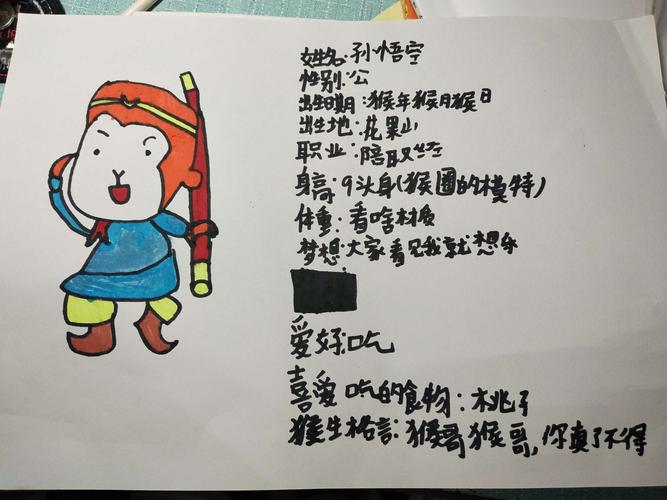 姓名:孙悟空
性别:公
出生日期:猴年猴月猴日
出生地:花果山
职业:陪取经
身高:9头身(猴圈的模特)
体重:看啥材质
梦想:大家看见我就想乐
爱好:吃
喜爱吃的食物:桃子
猴生格言:猴哥猴哥,你真了不得